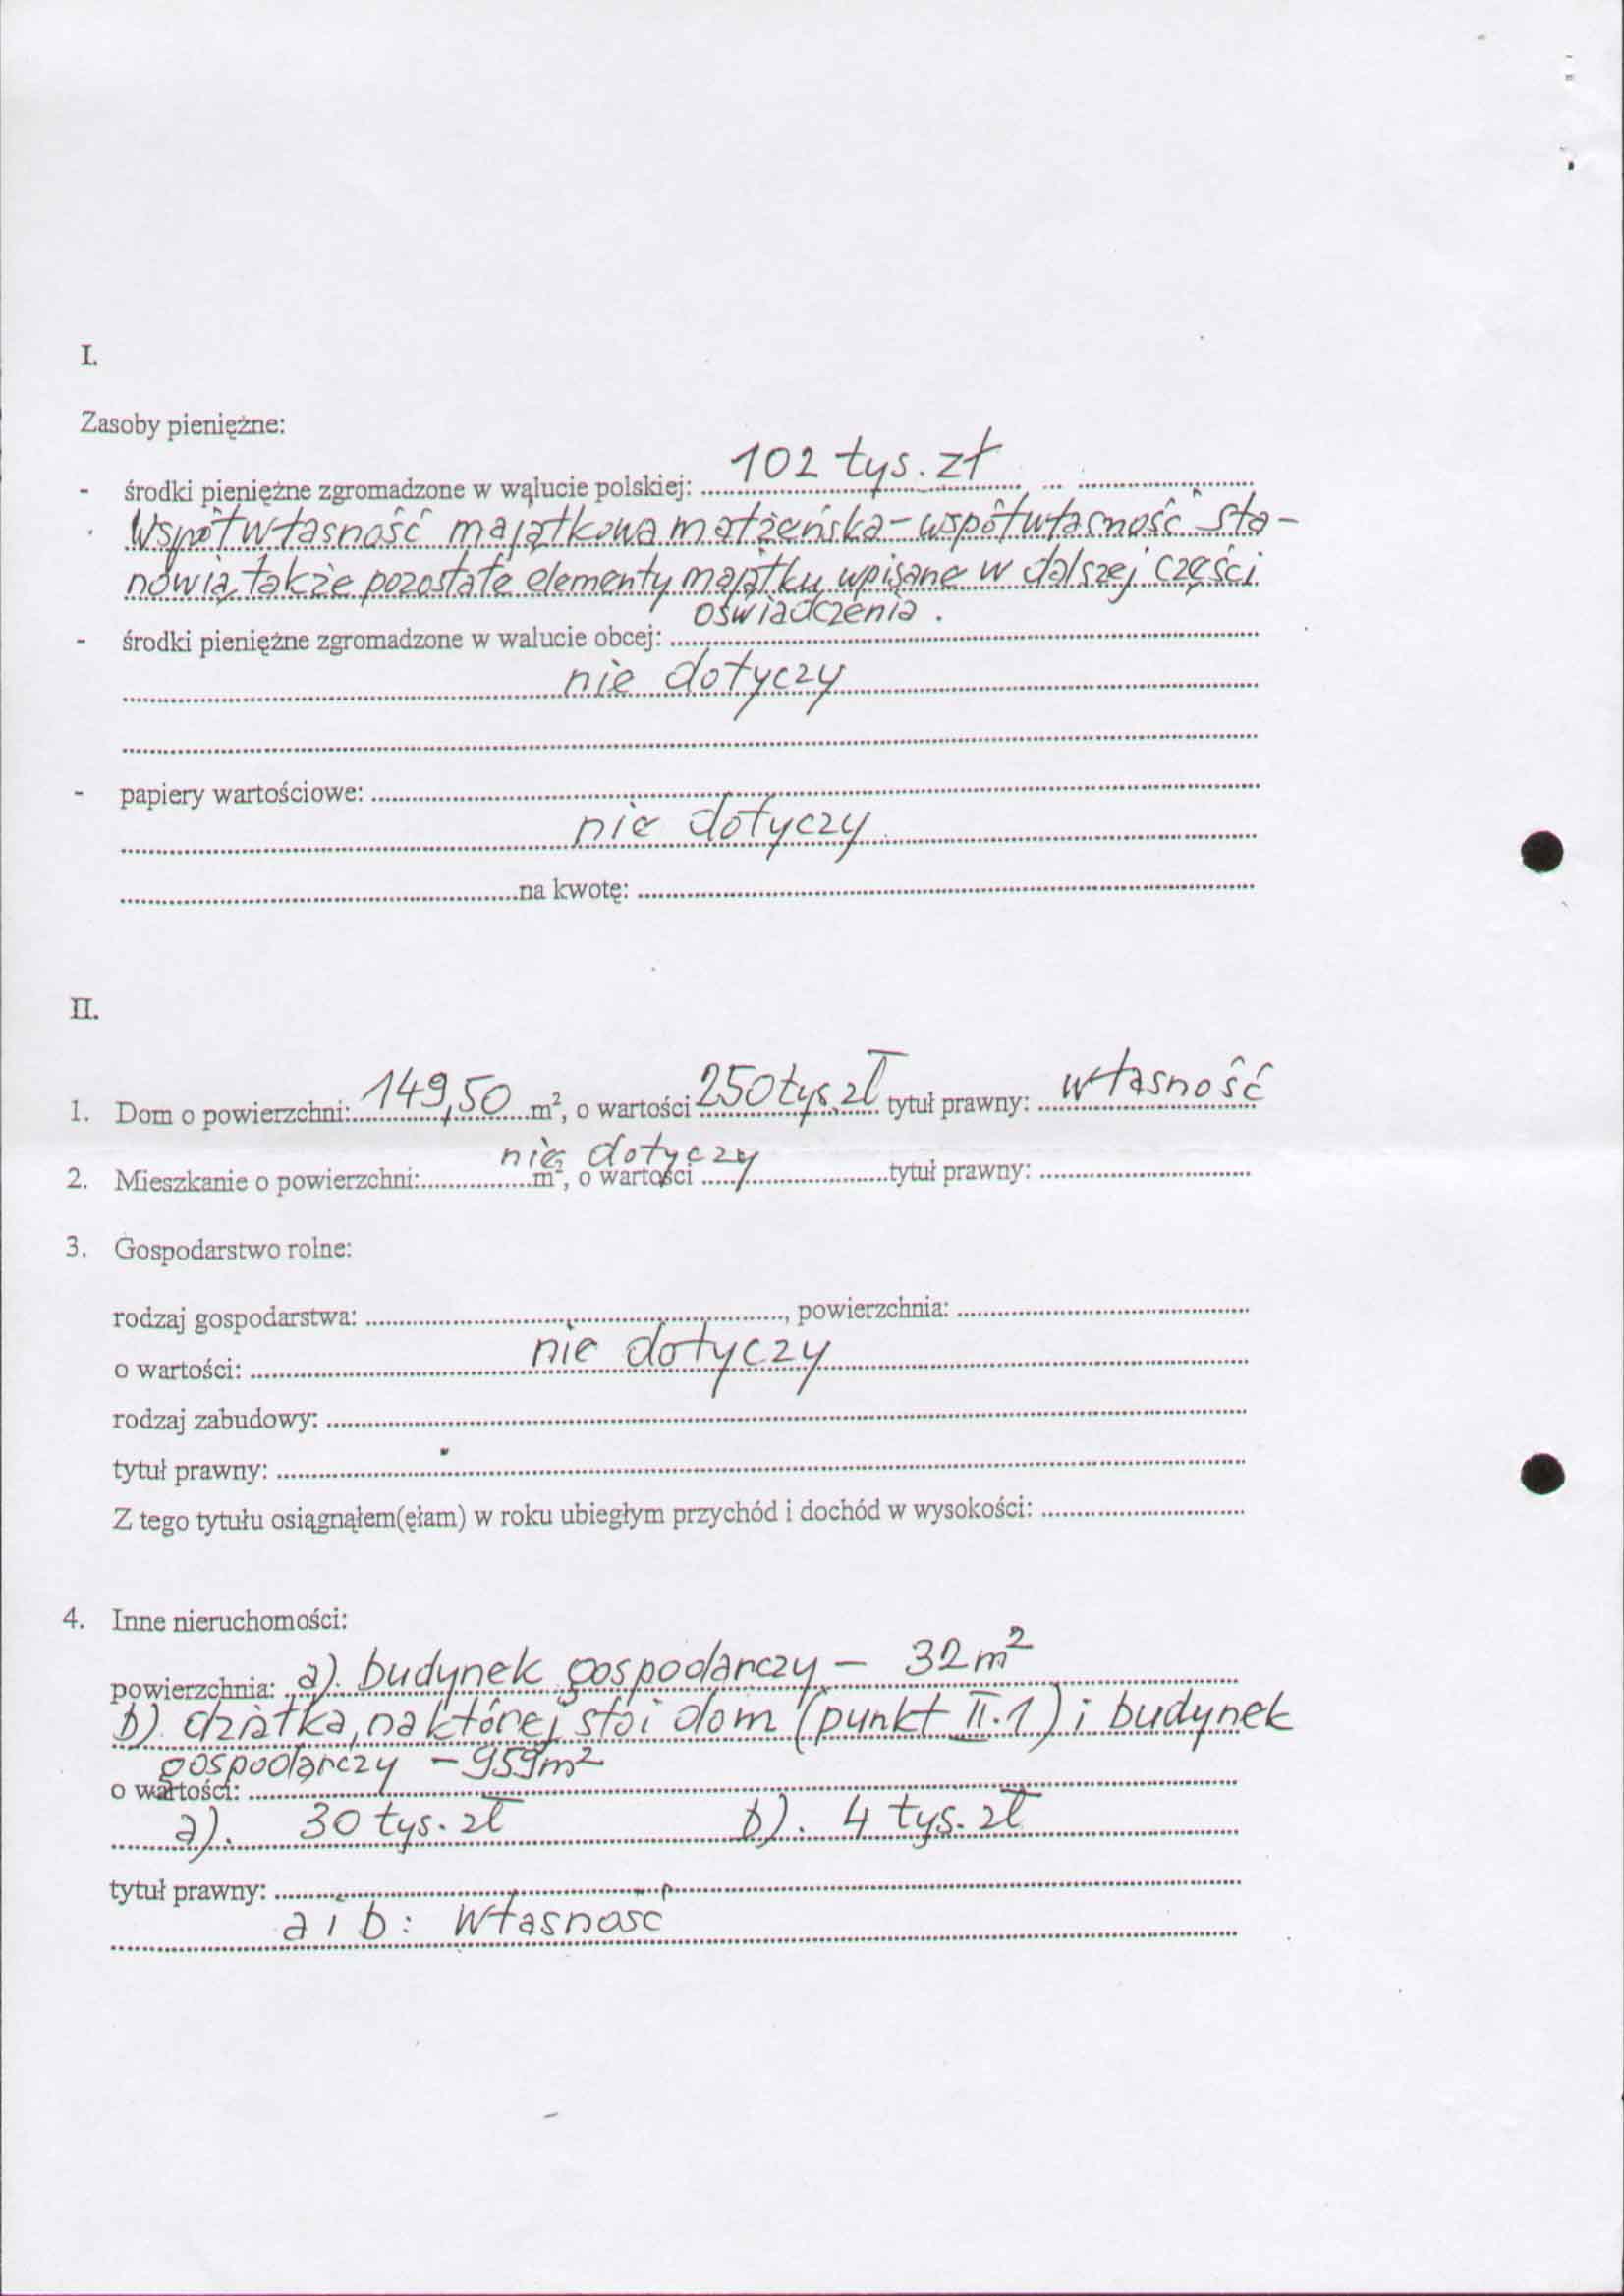 I.
Zasoby pieniężne:
- środki pieniężne zgromadzone w walucie polskiej: 102 tys. zł
Współwłasność majątkowa małżeńska - współwłasność sta-
nowią także pozostałe elementy majątku wpisane w dalszej części
oświadczenia.
- środki pieniężne zgromadzone w walucie obcej:
nie dotyczy
- papiery wartościowe:
nie dotyczy
na kwotę:
II.
1. Dom o powierzchni: 149,50 m², o wartości 250 tys. zł tytuł prawny: własność
nie dotyczy
2. Mieszkanie o powierzchni: m², o wartości tytuł prawny:
3. Gospodarstwo rolne:
rodzaj gospodarstwa: , powierzchnia:
o wartości: nie dotyczy
rodzaj zabudowy:
tytuł prawny:
Z tego tytułu osiągnąłem(ęłam) w roku ubiegłym przychód i dochód w wysokości:
4. Inne nieruchomości:
powierzchnia: a). budynek gospodarczy - 32 m²
b). działka, na której stoi dom (punkt II.1) i budynek
gospodarczy - 959 m²
o wartości:
a). 30 tys. zł b). 4 tys. zł
tytuł prawny:
a i b: własność